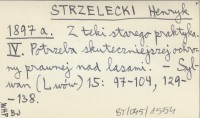 STRZELECKI Henryk
1897 a. Z teki starego praktyka.
IV. Potrzeba skuteczniejszej ochro-
ny prawnej nad lasami. — Syl-
wan (Lwów) 15: 97-104, 129-
-138.
BW